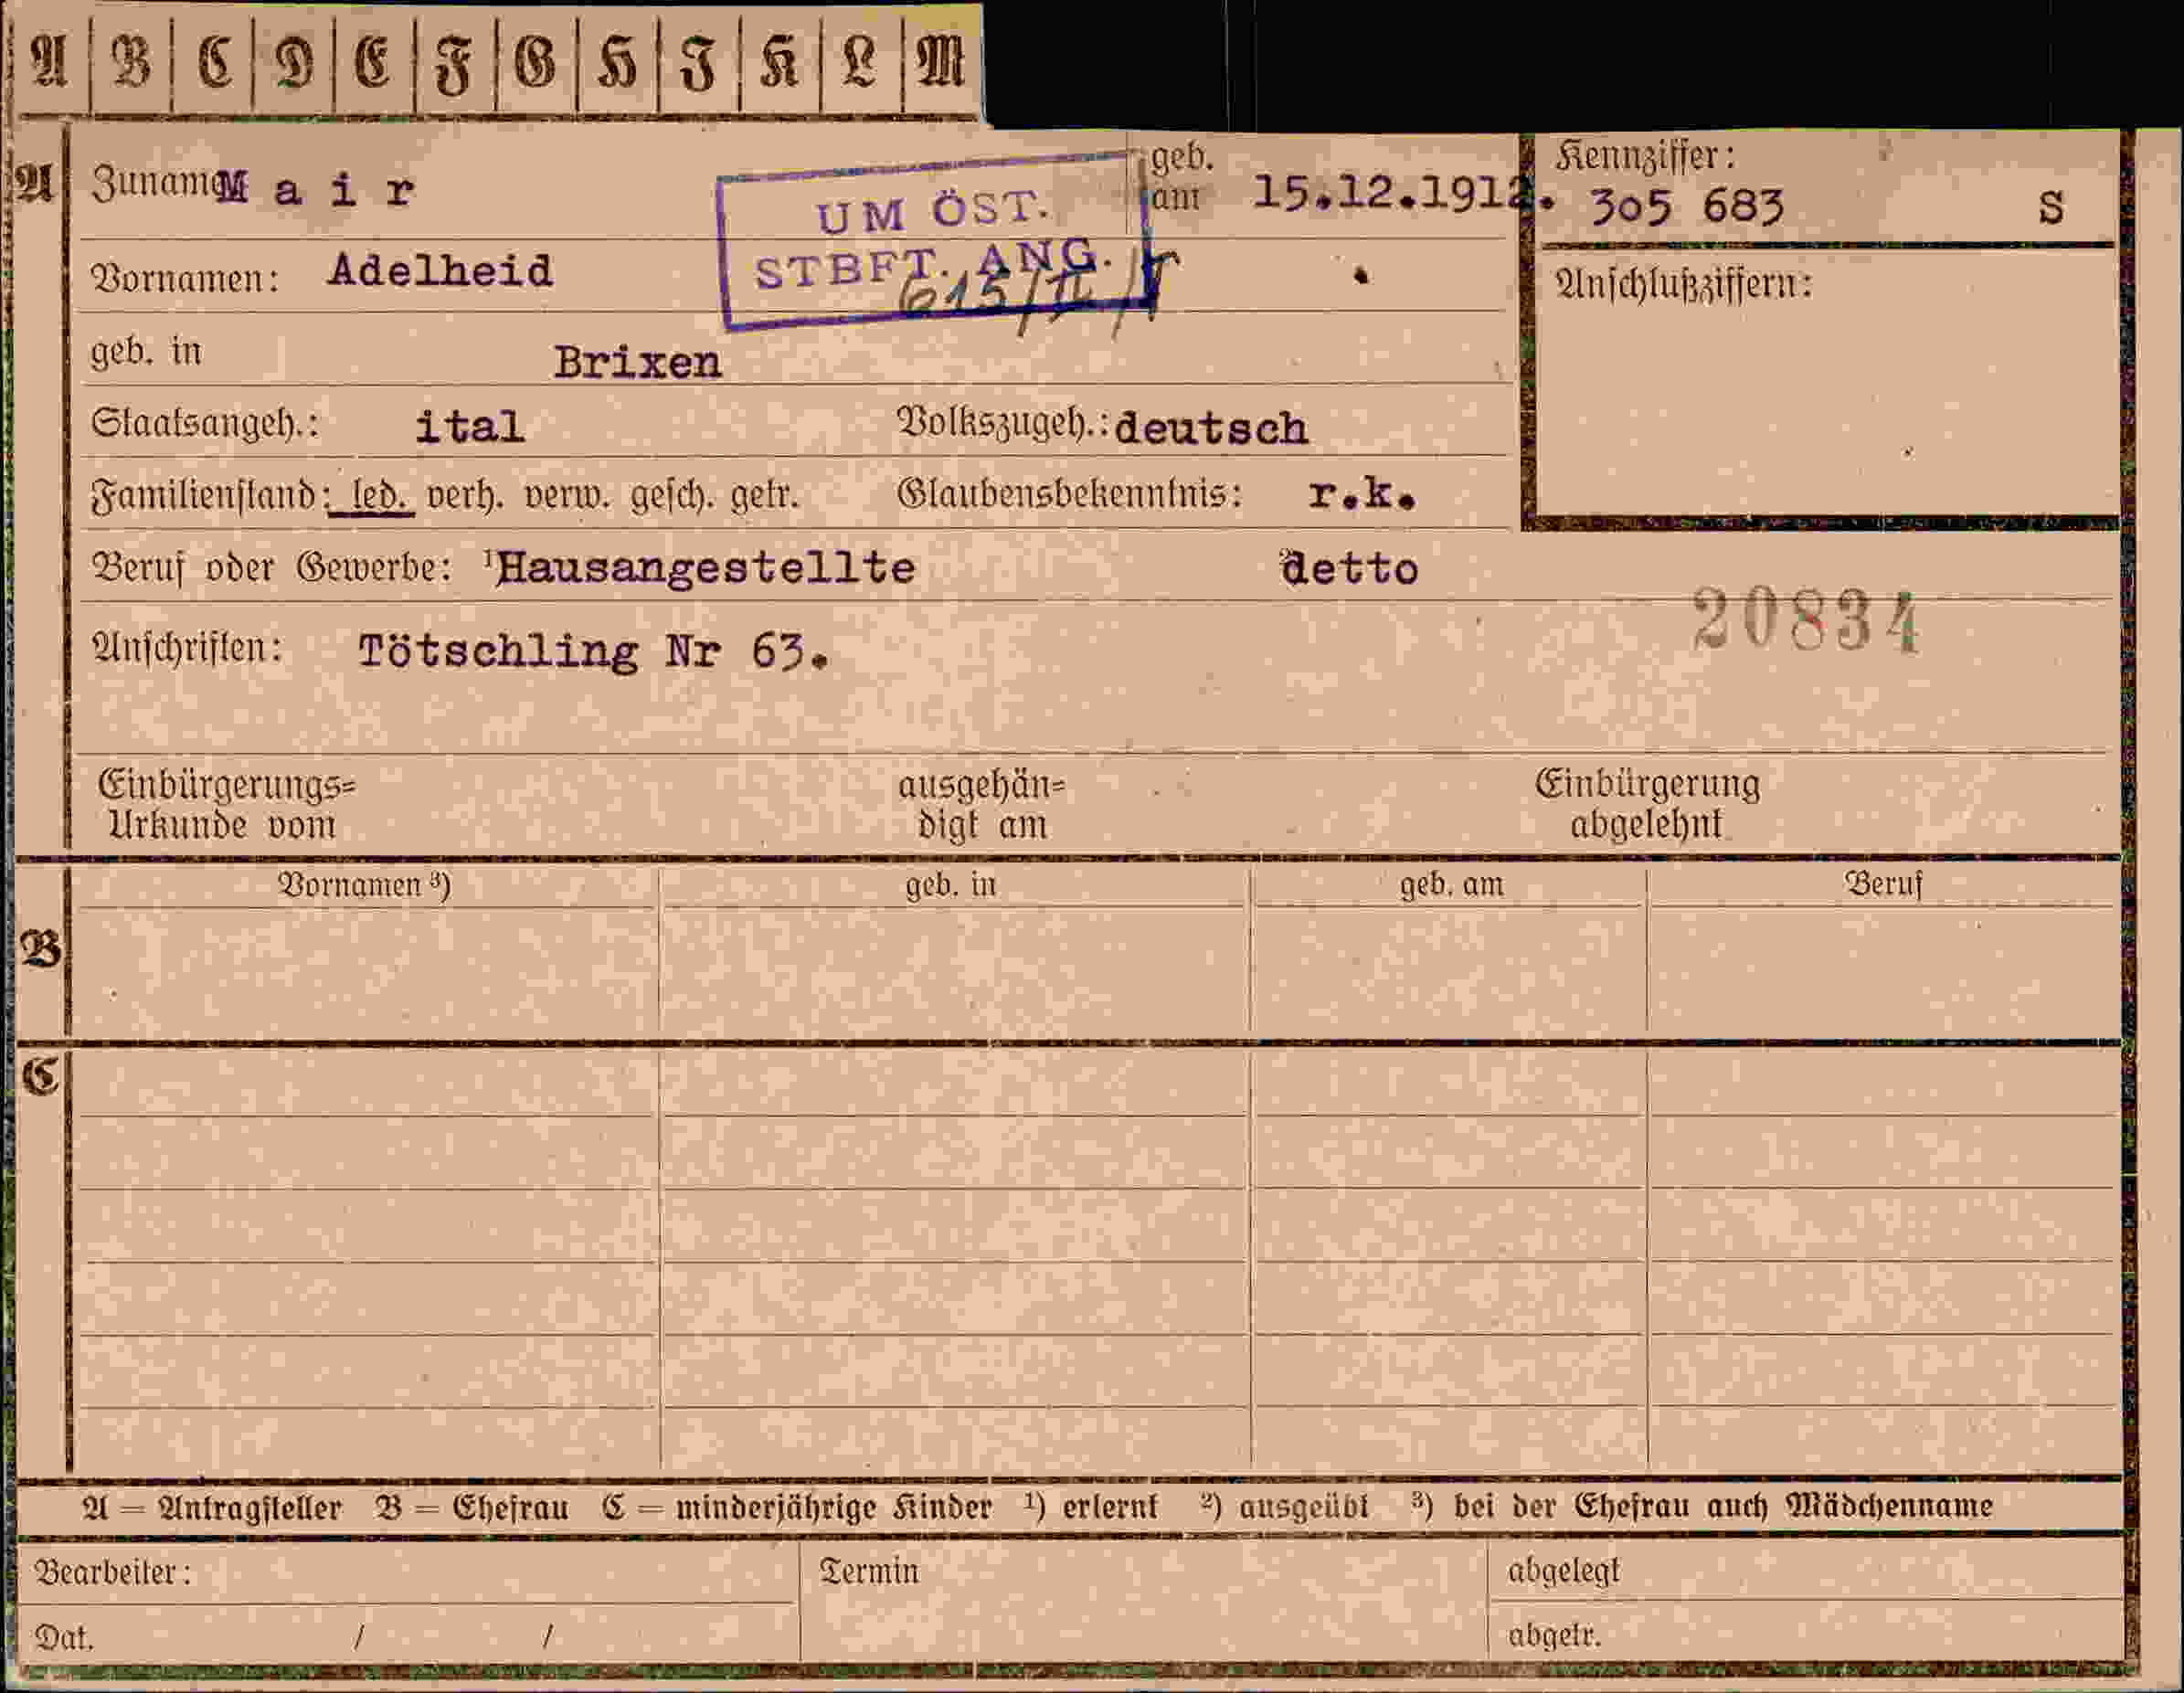 A B C D E F G H I K L M
A Zuname M a i r geb. am 15.12.1912. Kennziffer: 305 683 S
UM ÖST.
STBFT. ANG.
Vornamen: Adelheid Anschlußziffern:
geb. in Brixen
Staatsangeh.: ital Volkszugeh.: deutsch
Familienstand: led. verh. verw. gesch. getr. Glaubensbekenntnis: r.k.
Beruf oder Gewerbe: ¹Hausangestellte detto
20834
Anschriften: Tötschling Nr 63.
Einbürgerungs= ausgehän= Einbürgerung
Urkunde vom digt am abgelehnt
Vornamen ³) geb. in geb. am Beruf
B
C
A = Antragsteller B = Ehefrau C = minderjährige Kinder ¹) erlernt ²) ausgeübt ³) bei der Ehefrau auch Mädchenname
Bearbeiter: Termin abgelegt
Dat. / / abgetr.